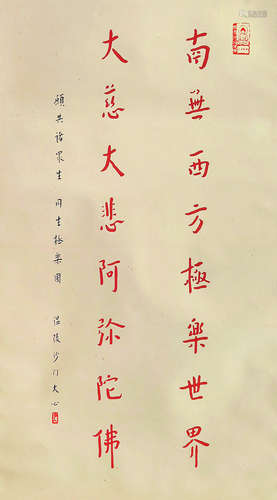 南無西方極樂世界
大慈大悲阿弥陀佛
願共諸眾生 同生極樂國
温陵沙门大心